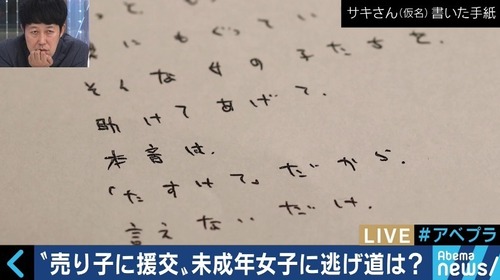 サキさん(仮名)書いた手紙
そんな女の子たちを、
助けてあげて。
本音は、
「たすけて」だから。
言えないだけ。
LIVE #アベプラ
〝売り子に援交〟未成年女子に逃げ道は?
Abema news